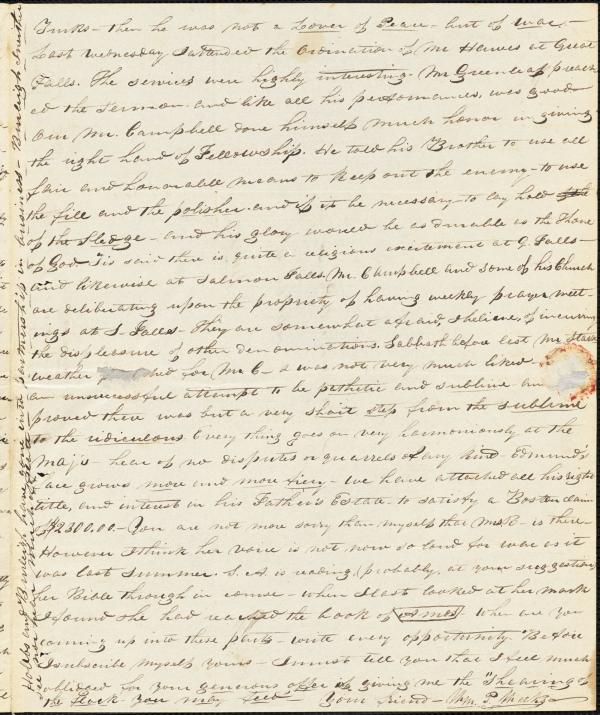 Turks - then he was not a Lover of Peace - but of war -
Last Wednesday I attended the Ordination of Mr Hawes at Great
Falls. The services were highly interesting - Mr Greenleaf preach
ed the sermon - and like all his performances, was good -
Our Mr. Campbell done himself much honor in giving
the right hand of Fellowship. He told his Brother to use all
fair and honorable means to keep out the enemy - to use
the fill and the polisher - and if it be necessary - to lay hold
of the Sledge - and his glory would be as durable as the Throne
of God 'Tis said there is quite a religious excitement at G. Falls -
and likewise at Salmon Falls. Mr. Campbell and some of his Church
are deliberating upon the propriety of having weekly prayer meet-
ings at S. Falls - They are somewhat afraid, I believe, of incurring
the displeasure of other denominations. Sabbath before last Mr
weather for Mr C - & was not very much liked
an unsuccessful attempt to be pathetic and sublime an
proved there was but a very short step from the sublime
to the ridiculous. Every thing goes on very harmoniously at the
Maj's - hear of no disputes or quarrels of any kind - Edmund's
are grows more and more fiery - we have attached all his right
title, and interest in his Father's Estate - to satisfy a Boston claim
$2300.00 - You are not more sorry than myself that Mrs - is there -
However I think her voice is not now so loud for war as it
was last summer. S. A. is reading, (probably, at your suggestion)
her Bible through in course - when I last looked at her mark
I found she had reached the book of Amos - When are you
coming up into these parts - write every opportunity. Before
I subscribe myself yours - I must tell you that I feel much
obliged for your generous offer of giving me the "Shearing of
the flock you may feed" Your friend - Wm. P.
Hobbs and Burleigh have gone into partnership in business - Burleigh